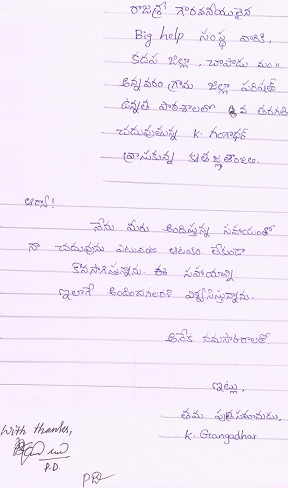 రాజశ్రీ గౌరవనీయులైన
Big help సంస్థ వారికి,
కడప జిల్లా, చాపాడు మం॥
అన్నవరం గ్రామ జిల్లా పరిషత్
ఉన్నత పాఠశాలలో వ తరగతి
చదువుతున్న K. గంగాధర్
వ్రాసుకున్న కృతజ్ఞతాంజలి.
ఆర్యా!
నేను మీరు అందిస్తున్న సహాయంతో
నా చదువును ఎటువంటి ఆటంకం లేకుండా
కొనసాగిస్తున్నాను. ఈ సహాయాన్ని
ఇలాగే అందించగలరని విశ్వసిస్తున్నాను.
అనేక నమస్కారాలతో.
ఇట్లు,
తమ పుత్రసమానుడు,
K. Grangadhar
With thanks,
P.D.
PD